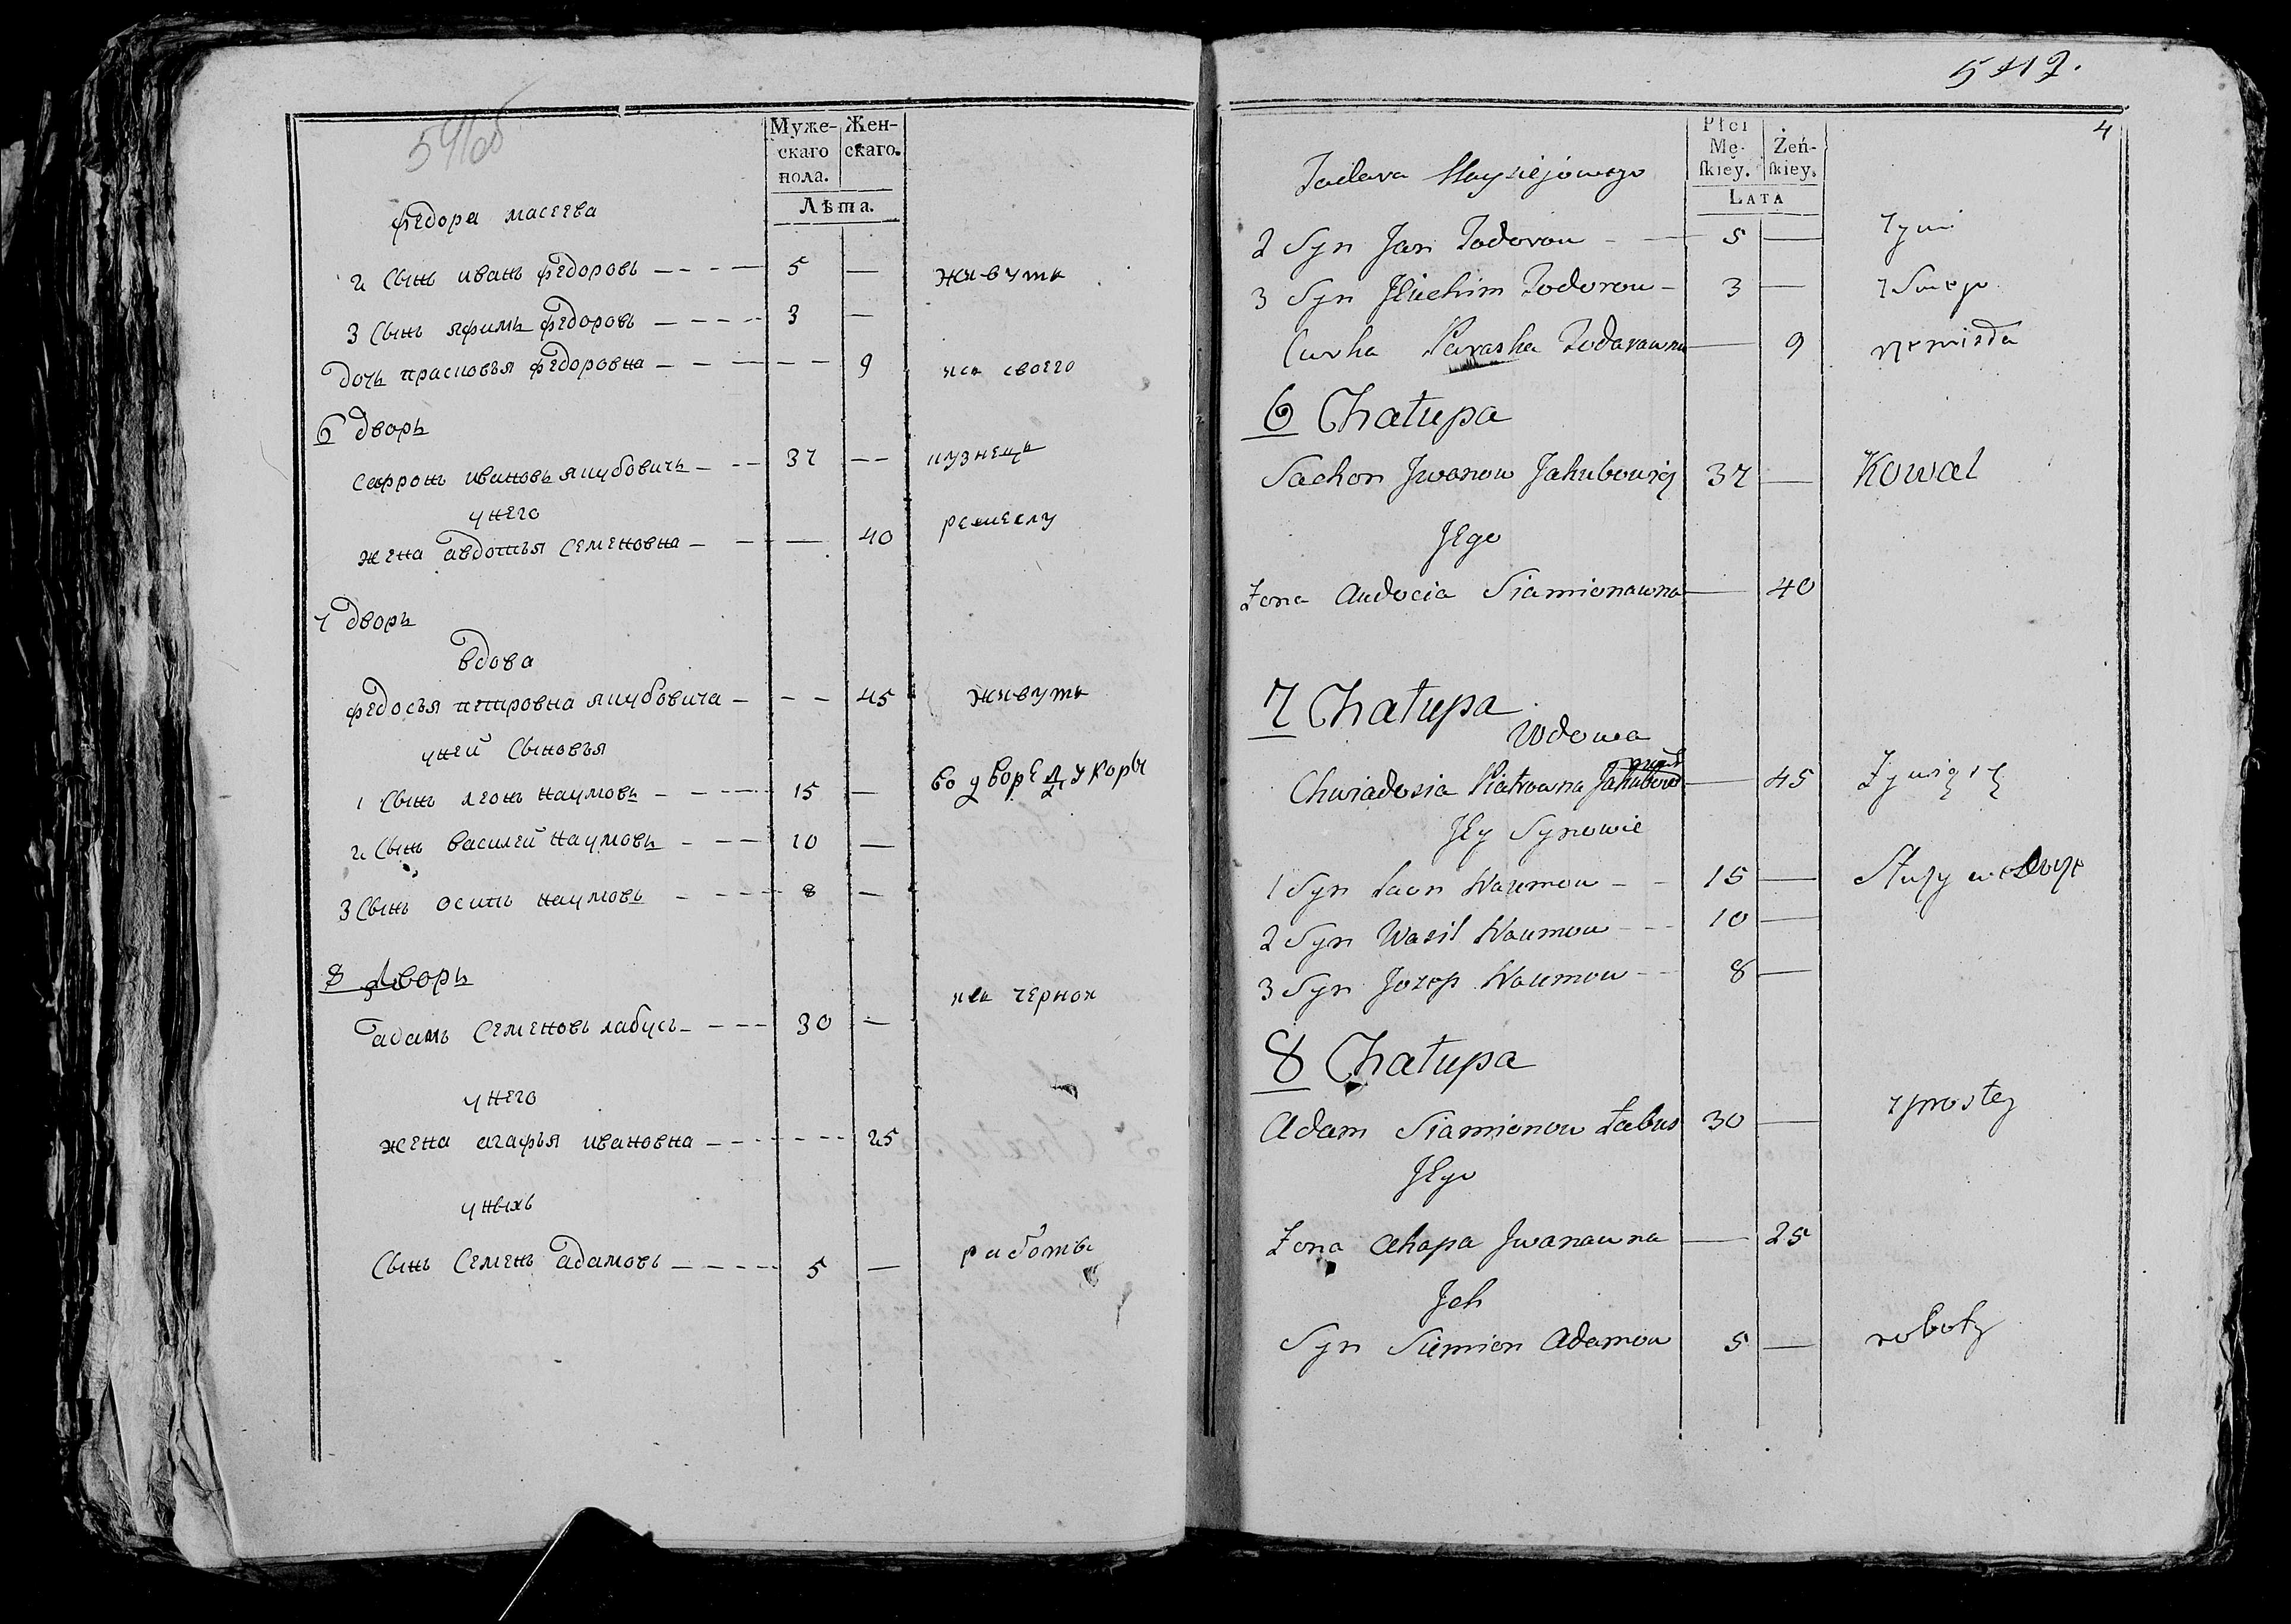 541об
Муже-
скаго
пола.
Жен-
скаго.
Лѣта.
федора масеева
2 Сынъ иванъ федоровъ – – – – 5 — живутъ
3 Сынъ яфимъ федоровъ – – – – 3 —
дочь прасковья федоровна – – – – – 9 изъ своего
6 дворъ
сафронъ ивановъ якубовичъ – – – 37 – – кузнецъ
унего
жена авдотья Семеновна – – — 40 ремеслу
7 дворъ
вдова
федосья петровна якубовича – – – 45 живутъ
уней Сыновъя
1 Сынъ леонъ наумовъ – – – – 15 — во дворе
2 Сынъ василей наумовъ – – – 10 —
3 Сынъ осипъ наумовъ – – – – 8 —
8 дворъ
адамъ Семеновъ лабусъ – – – – 30 — изъ черной
унего
жена агафья ивановна – – – – – – 25
уныхъ
Сынъ Семенъ адамовъ – – – – – 5 — работы
4
Płci
Mę-
skiey.
Żeń-
skiey.
LATA
2 Syn Jan Todorow – — 5 —
3 Syn Jiuchim Todorow – 3 — z Swego
Curka Paraska Todarawna — 9
6 Chałupa
Sachon Jwanow Jakubowicz 37 — Kowal
Jego
Żona Audocia Siamionawna — 40
7 Chałupa
Wdowa
Chwiadosia Piatrowna — 45 Żywią się
Jey Synowie
1 Syn Laon Naumow – – 15 — Służy we
2 Syn Wasil Naumow – – – 10 —
3 Syn Jozep Naumow – – 8 —
8 Chałupa
Adam Siamionow Łabus 30 — z prostey
Jego
Żona Ahapa Jwanawna — 25
Jch
Syn Siemion Adamow 5 — roboty